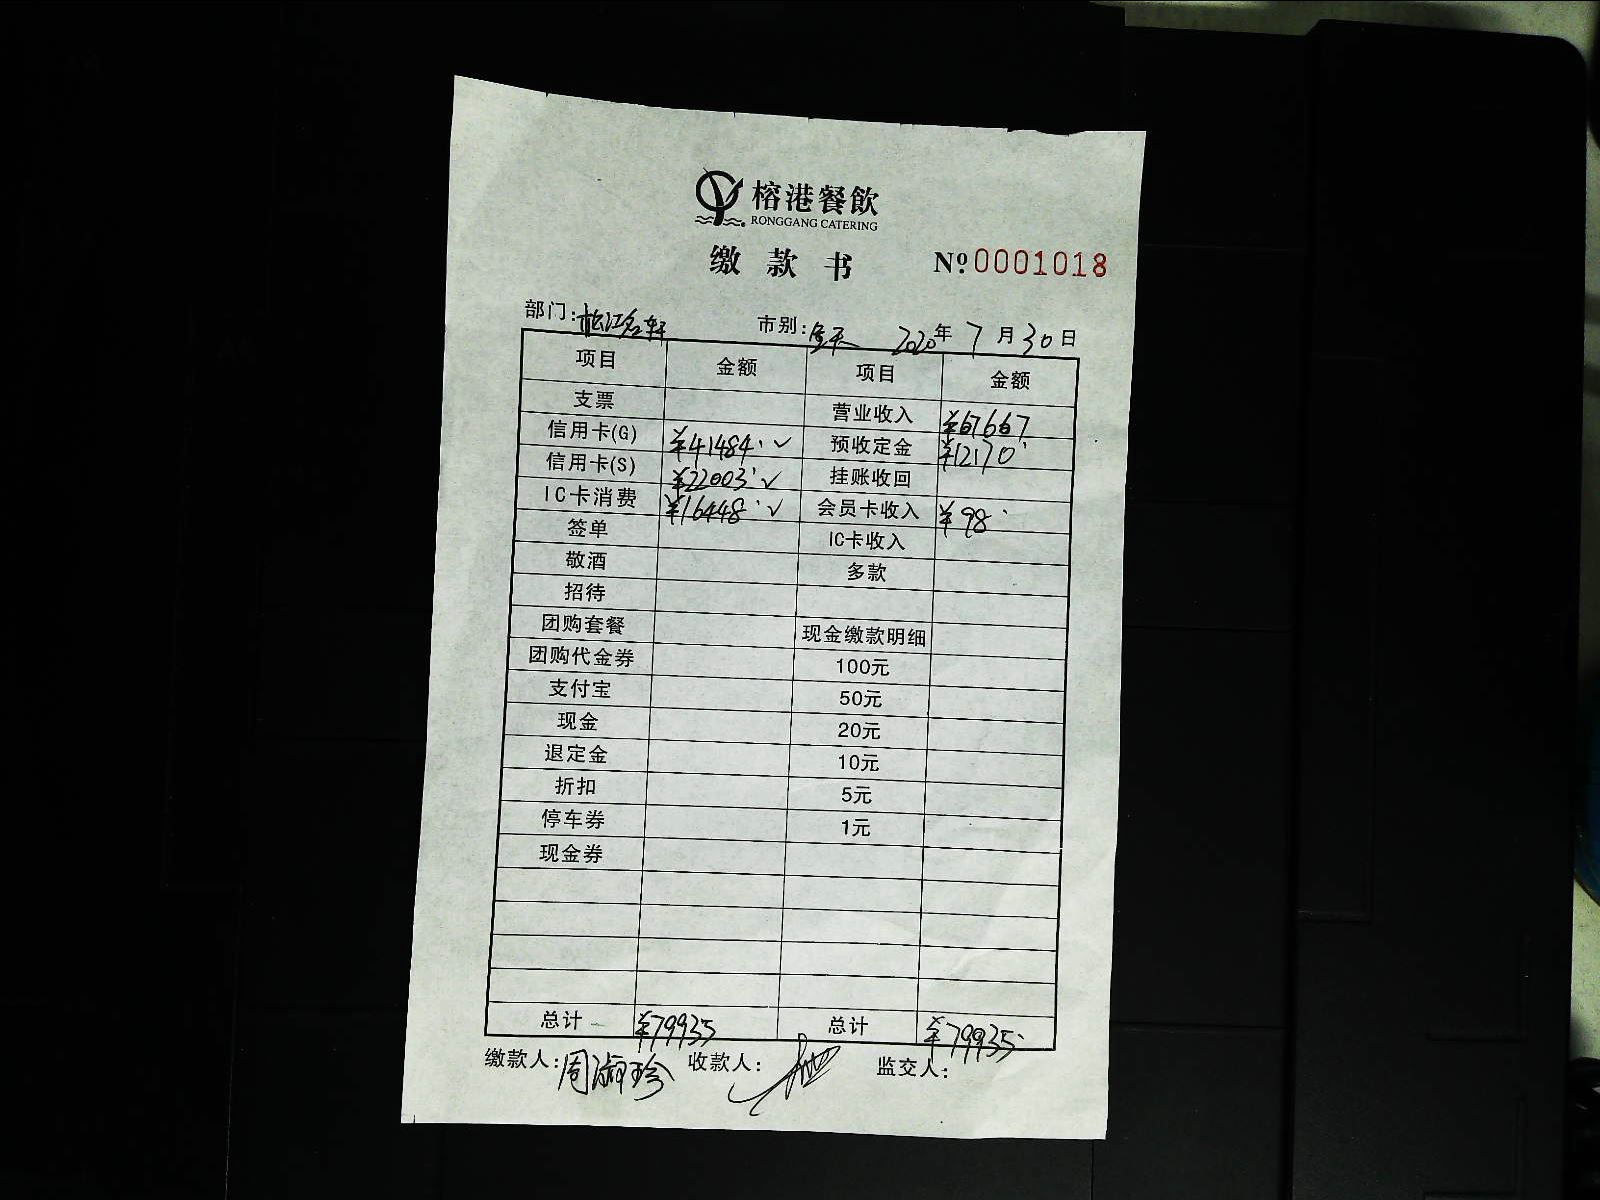 榕港餐飲
RONGGANG CATERING
缴款书 Nº 0001018
部门: 松江名轩 市别: 全天 2020年7月30日
项目 金额 项目 金额
支票 营业收入 ¥67667
信用卡(G) ¥41484 ✓ 预收定金 ¥12170
信用卡(S) ¥22003 ✓ 挂账收回
IC卡消费 ¥16448 ✓ 会员卡收入 ¥98
签单 IC卡收入
敬酒 多款
招待
团购套餐 现金缴款明细
团购代金券 100元
支付宝 50元
现金 20元
退定金 10元
折扣 5元
停车券 1元
现金券
总计 ¥79935 总计 ¥79935
缴款人: 周淑珍 收款人: 监交人: